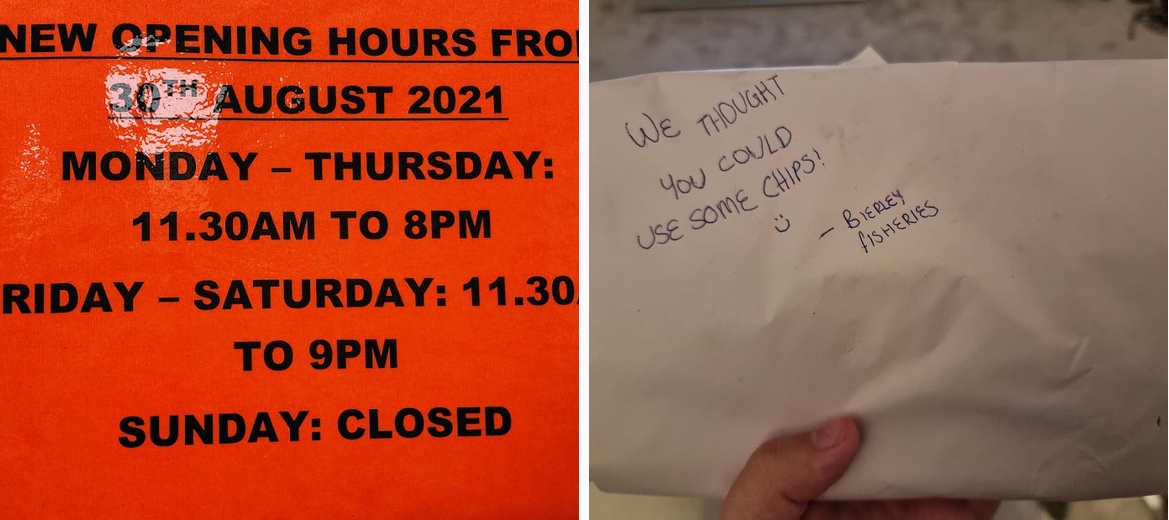 NEW OPENING HOURS FRO
30TH AUGUST 2021
MONDAY – THURSDAY:
11.30AM TO 8PM
RIDAY – SATURDAY: 11.30
TO 9PM
SUNDAY: CLOSED
WE THOUGHT
YOU COULD
USE SOME CHIPS!
– BIERLEY
FISHERIES